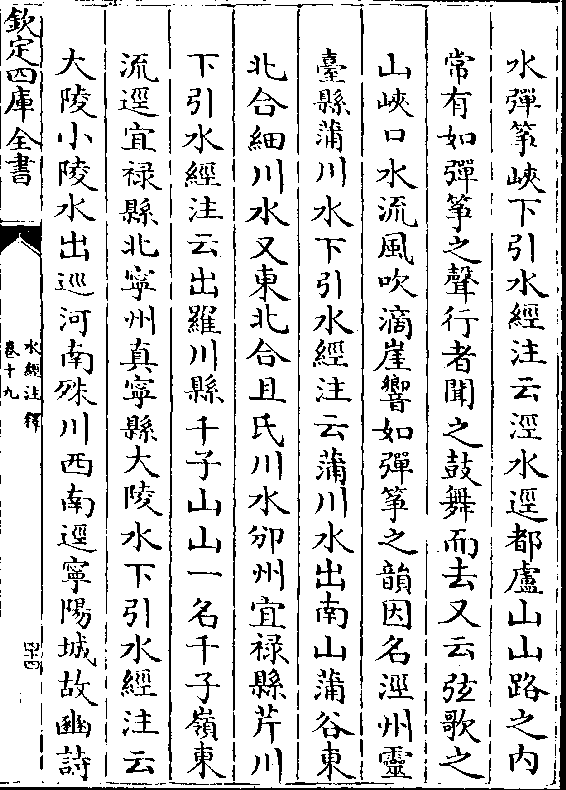 水彈筝峽下引水經注云涇水逕都盧山山路之内
常有如彈筝之聲行者聞之鼓舞而去又云弦歌之
山峽口水流風吹滴崖響如彈筝之韻因名涇州靈
臺縣蒲川水下引水經注云蒲川水出南山蒲谷東
北合細川水又東北合且氏川水邠州宜禄縣芹川
下引水經注云出羅川縣千子山山一名千子嶺東
流逕宜禄縣北寧州真寧縣大陵水下引水經注云
大陵小陵水出巡河南殊川西南逕寧陽城故豳詩
欽定四庫全書
水經注釋
卷十九